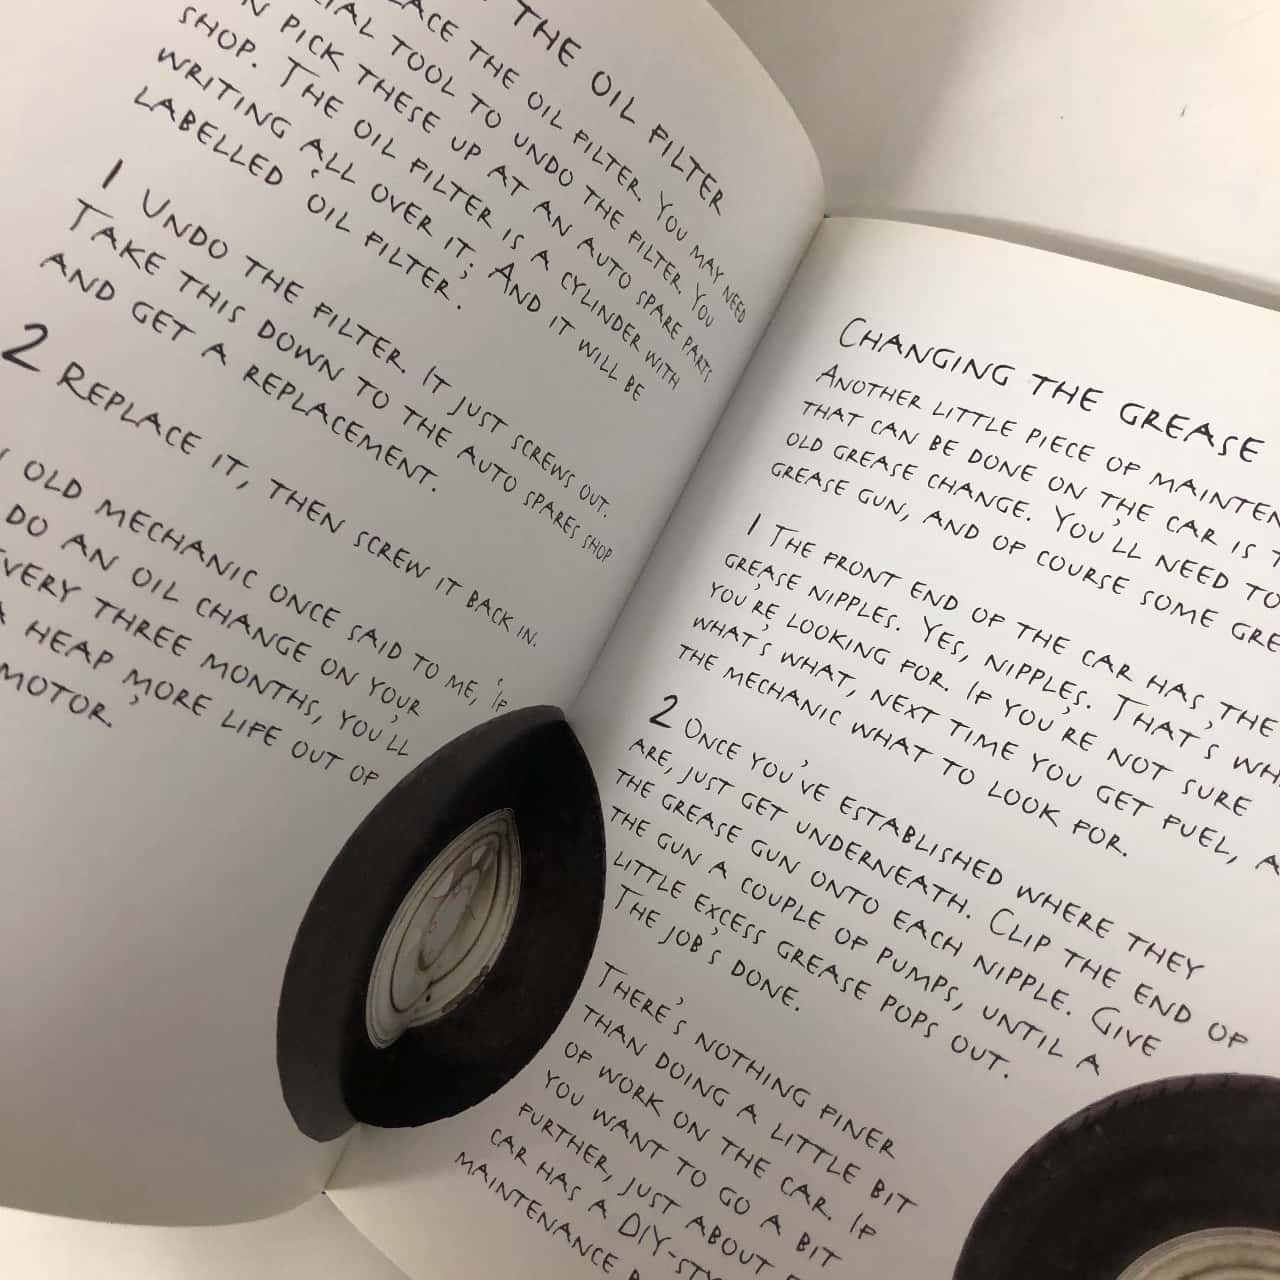 THE OIL FILTER
THE OIL FILTER. YOU MAY NEED
TOOL TO UNDO THE FILTER. YOU
PICK THESE UP AT AN AUTO SPARE PARTS
SHOP. THE OIL FILTER IS A CYLINDER WITH
WRITING ALL OVER IT; AND IT WILL BE
LABELLED 'OIL FILTER'.
1 UNDO THE FILTER. IT JUST SCREWS OUT.
TAKE THIS DOWN TO THE AUTO SPARES SHOP
AND GET A REPLACEMENT.
2 REPLACE IT, THEN SCREW IT BACK IN.
OLD MECHANIC ONCE SAID TO ME, 'IF
DO AN OIL CHANGE ON YOUR
EVERY THREE MONTHS, YOU'LL
A HEAP MORE LIFE OUT OF
MOTOR.'
CHANGING THE GREASE
ANOTHER LITTLE PIECE OF
THAT CAN BE DONE ON THE CAR IS
OLD GREASE CHANGE. YOU'LL NEED TO
GREASE GUN, AND OF COURSE SOME
1 THE FRONT END OF THE CAR HAS THE
GREASE NIPPLES. YES, NIPPLES. THAT'S
YOU'RE LOOKING FOR. IF YOU'RE NOT SURE
WHAT'S WHAT, NEXT TIME YOU GET FUEL,
THE MECHANIC WHAT TO LOOK FOR.
2 ONCE YOU'VE ESTABLISHED WHERE THEY
ARE, JUST GET UNDERNEATH. CLIP THE END OF
THE GREASE GUN ONTO EACH NIPPLE. GIVE
THE GUN A COUPLE OF PUMPS, UNTIL A
LITTLE EXCESS GREASE POPS OUT.
THE JOB'S DONE.
THERE'S NOTHING FINER
THAN DOING A LITTLE BIT
OF WORK ON THE CAR. IF
YOU WANT TO GO A BIT
FURTHER, JUST ABOUT
CAR HAS A DIY-
MAINTENANCE